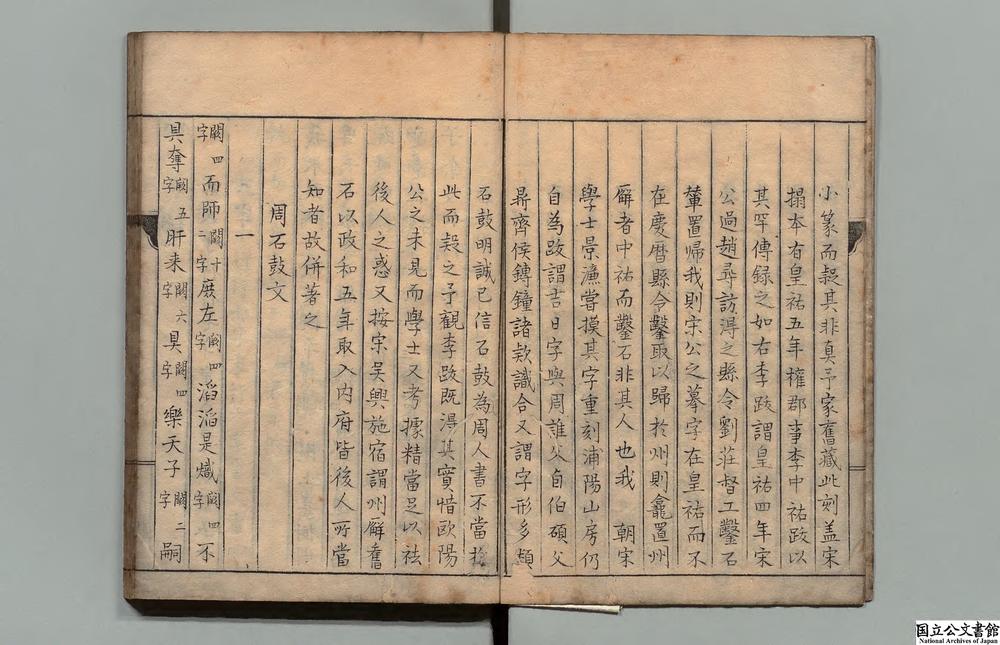 小篆而疑其非真予家舊藏此刻盖宋
搨本有皇祐五年權郡事李中祐跋以
其罕傳録之如右李跋謂皇祐四年宋
公過趙尋訪得之縣令劉莊督工鑿石
輦置帰我則宋公之摹字在皇祐而不
在慶曆縣令鑿取以歸於州則龕置州
廨者中祐而鑿石非其人也我 朝宋
學士景濂嘗摸其字重刻浦陽山房仍
自為跋謂吉日字與周誰父卣伯碩父
鼎齊侯鎛鐘諸欵識合又謂字形多類
石鼓明誠已信石鼓為周人書不當捨
此而疑之予觀李跋既得其實惜歐陽
公之未見而學士又考據精當足以祛
後人之惑又按宋吴興施宿謂州廨舊
石以政和五年取入内府皆後人所當
知者故併著之
周石鼓文
一
闕四字而師闕十二字庶左闕四字滔滔是熾闕四字不
具奪闕五字肝来闕六字具闕四字樂天子闕二字嗣
国立公文書館
National Archives of Japan